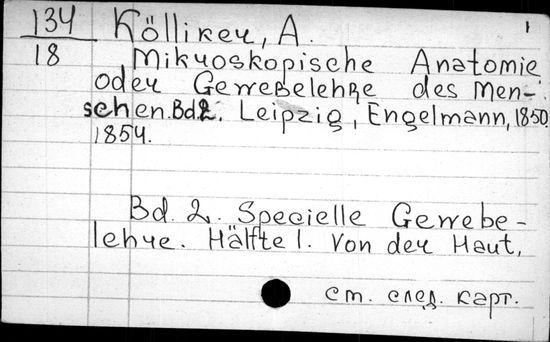 134 Kölliker, A. 1
18 Mikroskopische Anatomie
oder Gewebelehre des Men-
schen. Bd2. Leipzig, Engelmann, 1850
1854.
Bd. 2. Specielle Gewebe-
lehre. Hälfte 1. Von der Haut,
ст. след. карт.